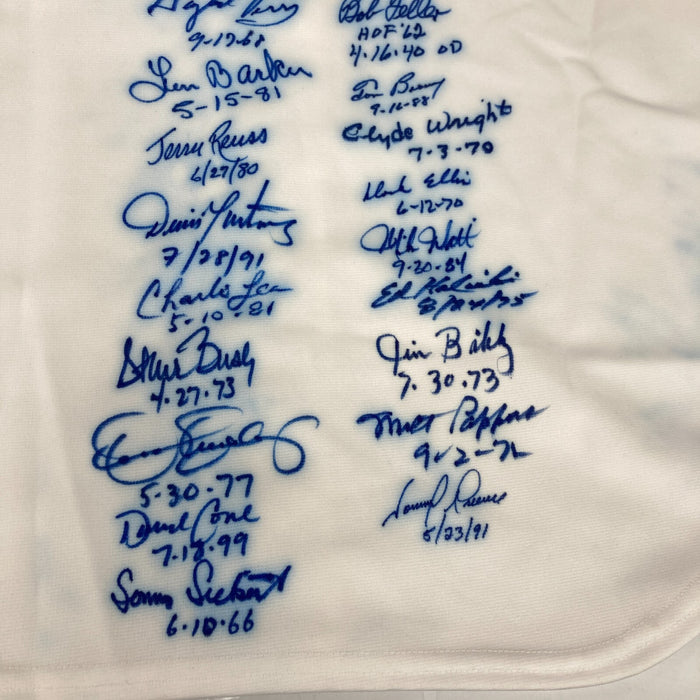 Gaylord Perry
9-17-68
Len Barker
5-15-81
Jerry Reuss
6/27/80
Dennis Martinez
7/28/91
Charlie Lea
5-10-81
Steve Busby
4.27.73
Dennis Eckersley
5-30-77
David Cone
7-18-99
Sonny Siebert
6.10.66
Bob Feller
HOF '62
4.16.40 OD
Tom Browning
9-16-88
Clyde Wright
7-3-70
Dock Ellis
6-12-70
Mike Witt
9-30-84
Ed Halicki
8/24/75
Jim Bibby
7.30.73
Milt Pappas
9-2-72
Tommy Greene
5/23/91